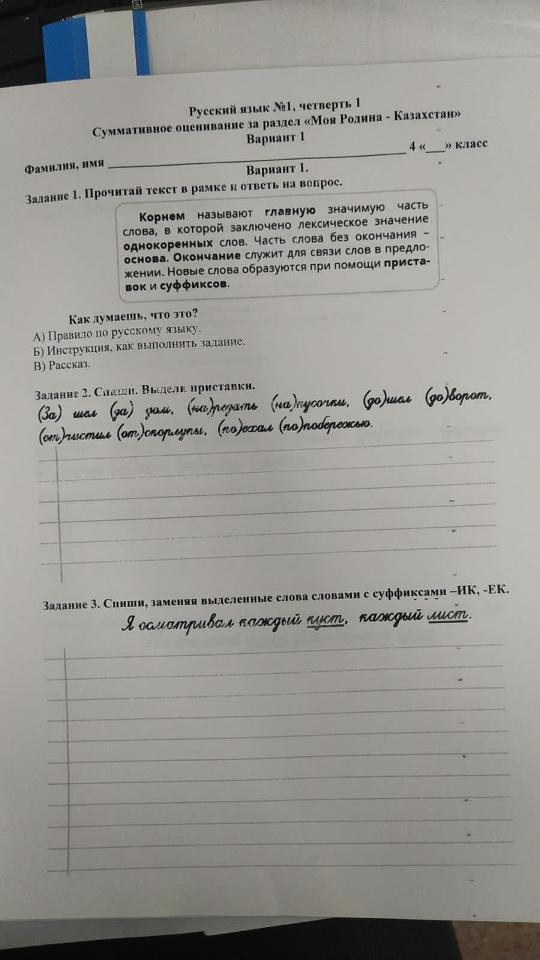 Русский язык №1, четверть 1
Суммативное оценивание за раздел «Моя Родина - Казахстан»
Вариант 1
Фамилия, имя ______________ 4 «___» класс
Вариант 1.
Задание 1. Прочитай текст в рамке и ответь на вопрос.
Корнем называют главную значимую часть
слова, в которой заключено лексическое значение
однокоренных слов. Часть слова без окончания –
основа. Окончание служит для связи слов в предло-
жении. Новые слова образуются при помощи приста-
вок и суффиксов.
Как думаешь, что это?
А) Правило по русскому языку.
Б) Инструкция, как выполнить задание.
В) Рассказ.
Задание 2. Спиши. Выдели приставки.
(За) шел (за) дом, (на)резать (на)кусочки, (до)шел (до)ворот,
(от)чистил (от)скорлупы, (по)ехал (по)побережью.
Задание 3. Спиши, заменяя выделенные слова словами с суффиксами –ИК, -ЕК.
Я осматривал каждый куст, каждый лист.